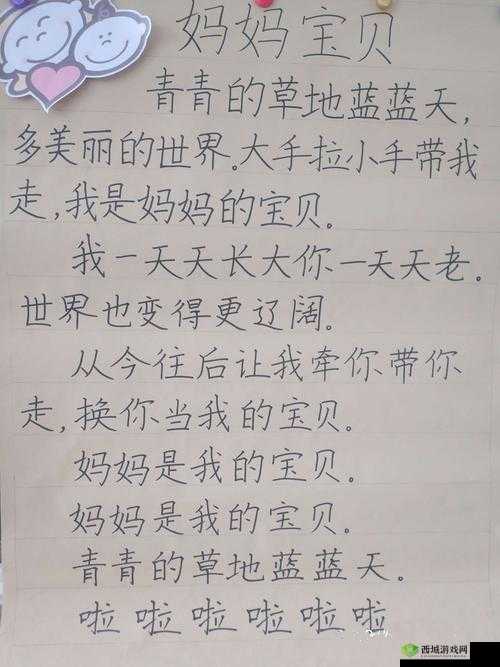 妈妈宝贝
青青的草地蓝蓝天,
多美丽的世界。大手拉小手带我
走,我是妈妈的宝贝。
我一天天长大你一天天老。
世界也变得更辽阔。
从今往后让我牵你带你
走,换你当我的宝贝。
妈妈是我的宝贝。
妈妈是我的宝贝。
青青的草地蓝蓝天。
啦啦啦啦啦啦
西城游戏网